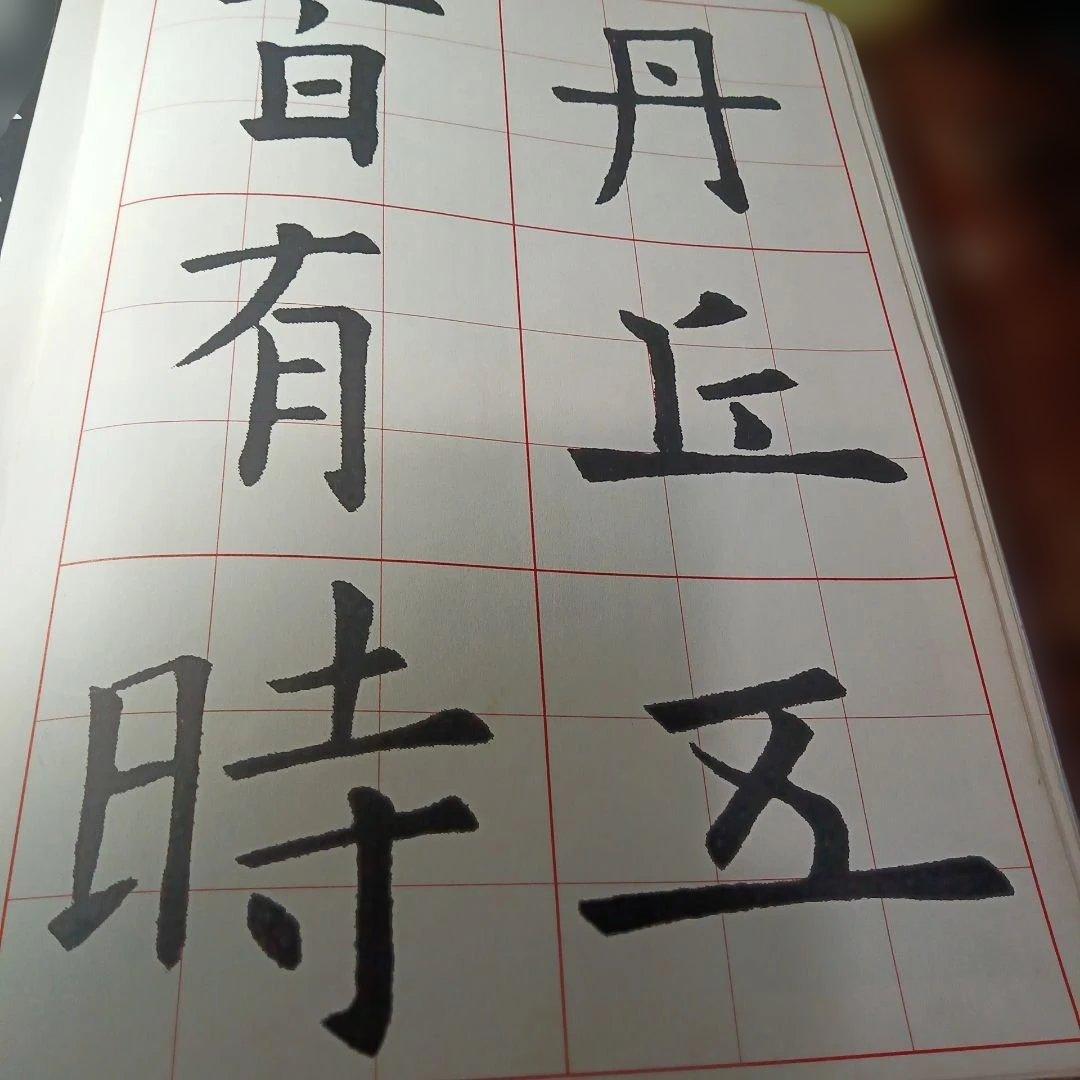 丹丘五
有時